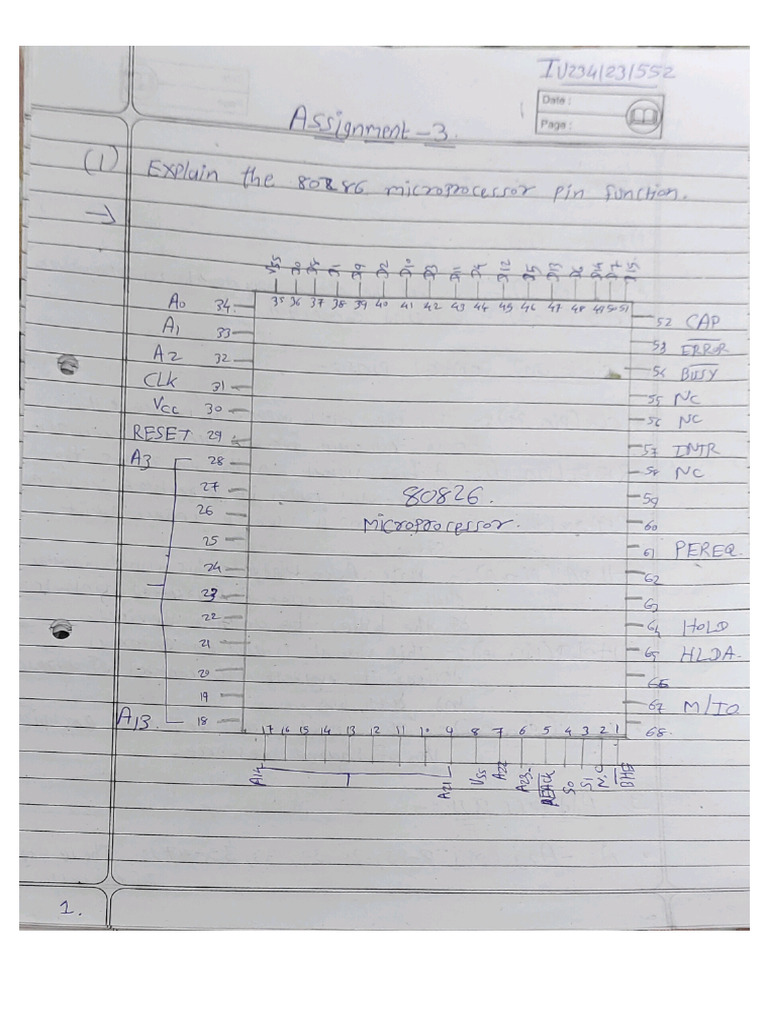 IU2341231552
Date :
Page :
Assignment - 3.
(1) Explain the 80286 microprocessor pin function.
→
35 36 37 38 39 40 41 42 43 44 45 46 47 48 49 50 51
A0 34
A1 33
A2 32
CLK 31
Vcc 30
RESET 29
A3 28
27
26
25
24
23
22
21
20
19
A13. 18
80826.
microprocessor.
52 CAP
53 ERROR
54 BUSY
55 NC
56 NC
57 INTR
58 NC
59
60
61 PEREQ.
62
63
64 HOLD
65 HLDA.
66
67 M/IO
68.
17 16 15 14 13 12 11 10 9 8 7 6 5 4 3 2 1
A14 A21 Vss A22 A23. S0 S1 N.C BHE
1.